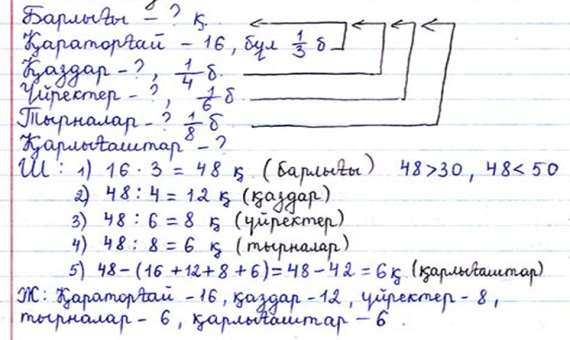 Барлығы – ? қ.
Қараторғай – 16, бұл 1/3 б
Қаздар – ?, 1/4 б.
Үйректер – ?, 1/6 б
Тырналар – ? 1/8 б
Қарлығаштар – ?
Ш: 1) 16 · 3 = 48 қ (барлығы) 48>30, 48<50
2) 48 : 4 = 12 қ (қаздар)
3) 48 : 6 = 8 қ (үйректер)
4) 48 : 8 = 6 қ (тырналар)
5) 48 – (16 + 12 + 8 + 6) = 48 – 42 = 6 қ (қарлығаштар)
Ж: Қараторғай – 16, қаздар – 12, үйректер – 8,
тырналар – 6, қарлығаштар – 6.